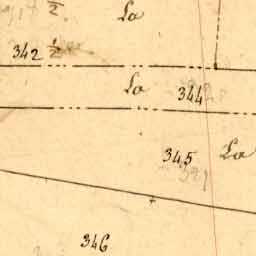 ½
La
342 ½
La
344
345
La
321
346